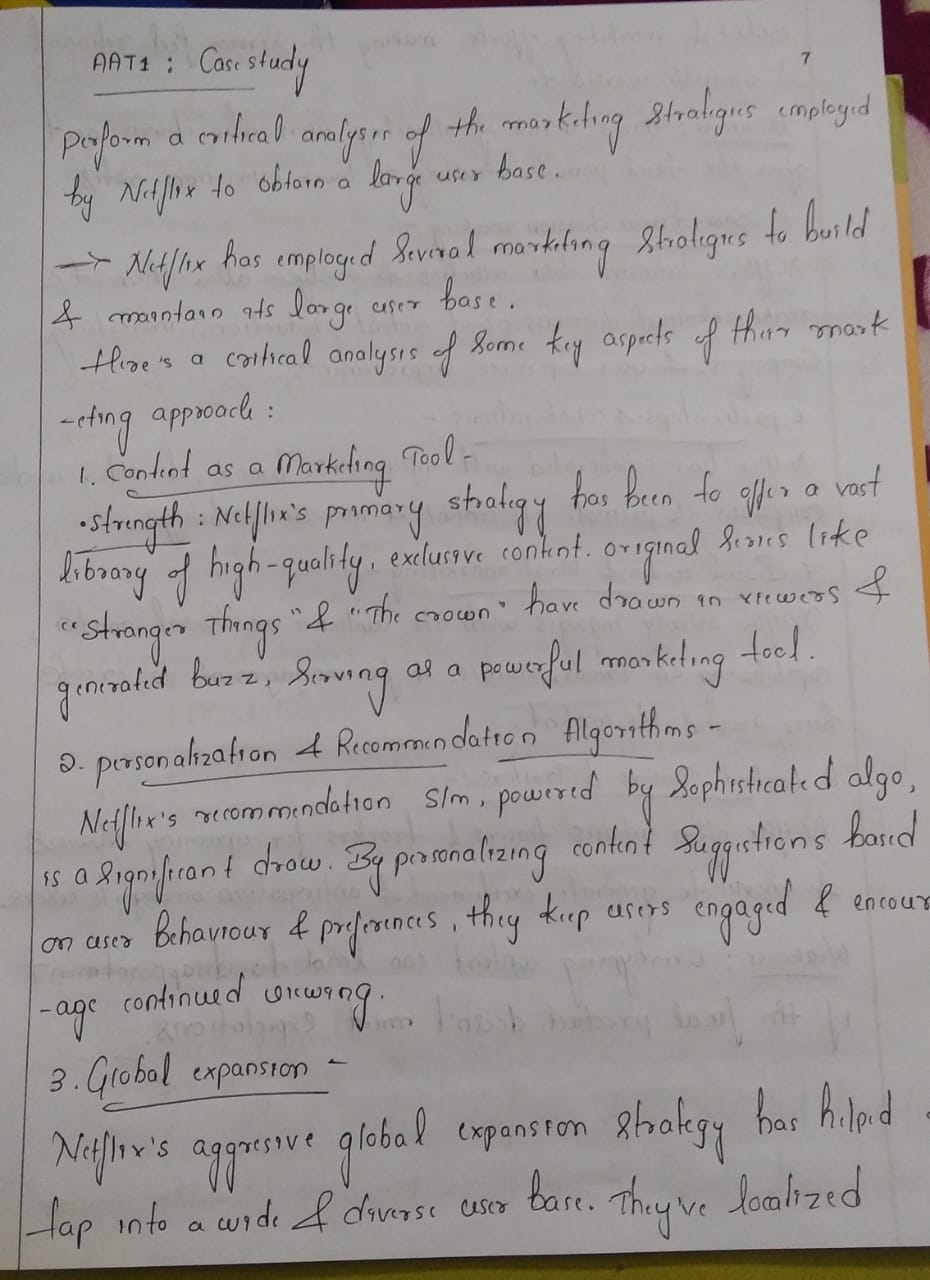 AAT1 : Case study
7
Perform a critical analysis of the marketing strategies employed
by Netflix to obtain a large user base.
→ Netflix has employed several marketing strategies to build
& maintain its large user base.
Here's a critical analysis of some key aspects of their mark
-eting approach :
1. Content as a Marketing Tool -
• strength : Netflix's primary strategy has been to offer a vast
library of high-quality, exclusive content. original series like
"Stranger Things" & "The crown" have drawn in viewers &
generated buzz, serving as a powerful marketing tool.
2. personalization & Recommendation Algorithms -
Netflix's recommendation s/m, powered by sophisticated algo,
is a significant draw. By personalizing content suggestions based
on user Behaviour & preferences, they keep users engaged & encour
-age continued viewing.
3. Global expansion -
Netflix's aggresive global expansion strategy has helped
tap into a wide & diverse user base. They've localized